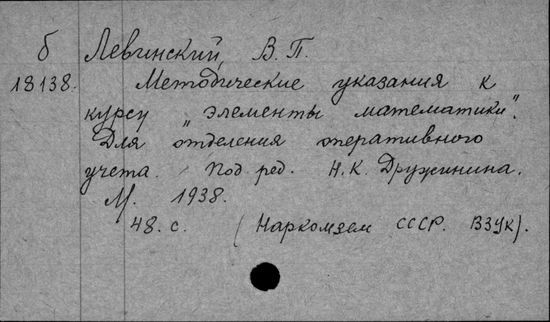 б Левинский, В. П.
18138. Методические указания к
курсу „элементы математики“.
Для отделения оперативного
учета. Под ред. Н. К. Дружинина.
М. 1938.
48. с. (Наркомзем СССР. ВЗУК).